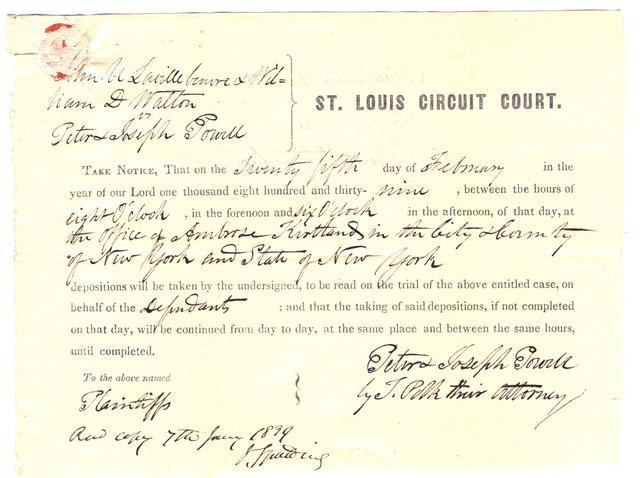 John U Lavillebeuvre & Wil-
liam D Walton
vs
Peter & Joseph Powell
ST. LOUIS CIRCUIT COURT.
TAKE NOTICE, That on the Twenty fifth day of February in the
year of our Lord one thousand eight hundred and thirty- nine , between the hours of
eight O'Clock , in the forenoon and six O'Clock in the afternoon, of that day, at
the Office of Ambrose in the City & County
of New York and State of New York
depositions will be taken by the undersigned, to be read on the trial of the above entitled case, on
behalf of the Defendants ; and that the taking of said depositions, if not completed
on that day, will be continued from day to day, at the same place and between the same hours,
until completed.
Peter & Joseph Powell
by T. Polk their Attorney
To the above named
Plaintiffs
Recd copy 7th Jany 1839
J Spalding